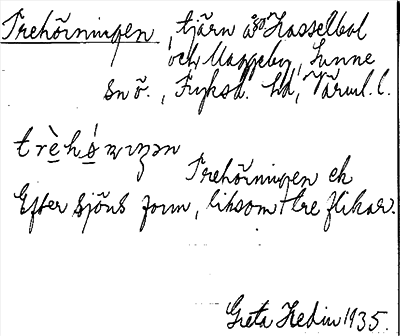 Trehörningen, tjärn åso Hasselbol
och Uggleby, Sunne
sn ö., Fryksd. hd, Värml. l.
Trehörningen ek
Efter sjöns form, liksom tre flikar.
Greta Hedin 1935.